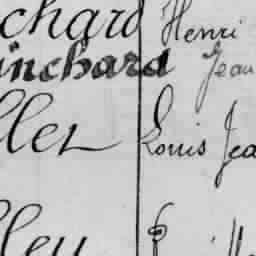 chard Henri
inchard Jean
llet Louis Jea
lleu